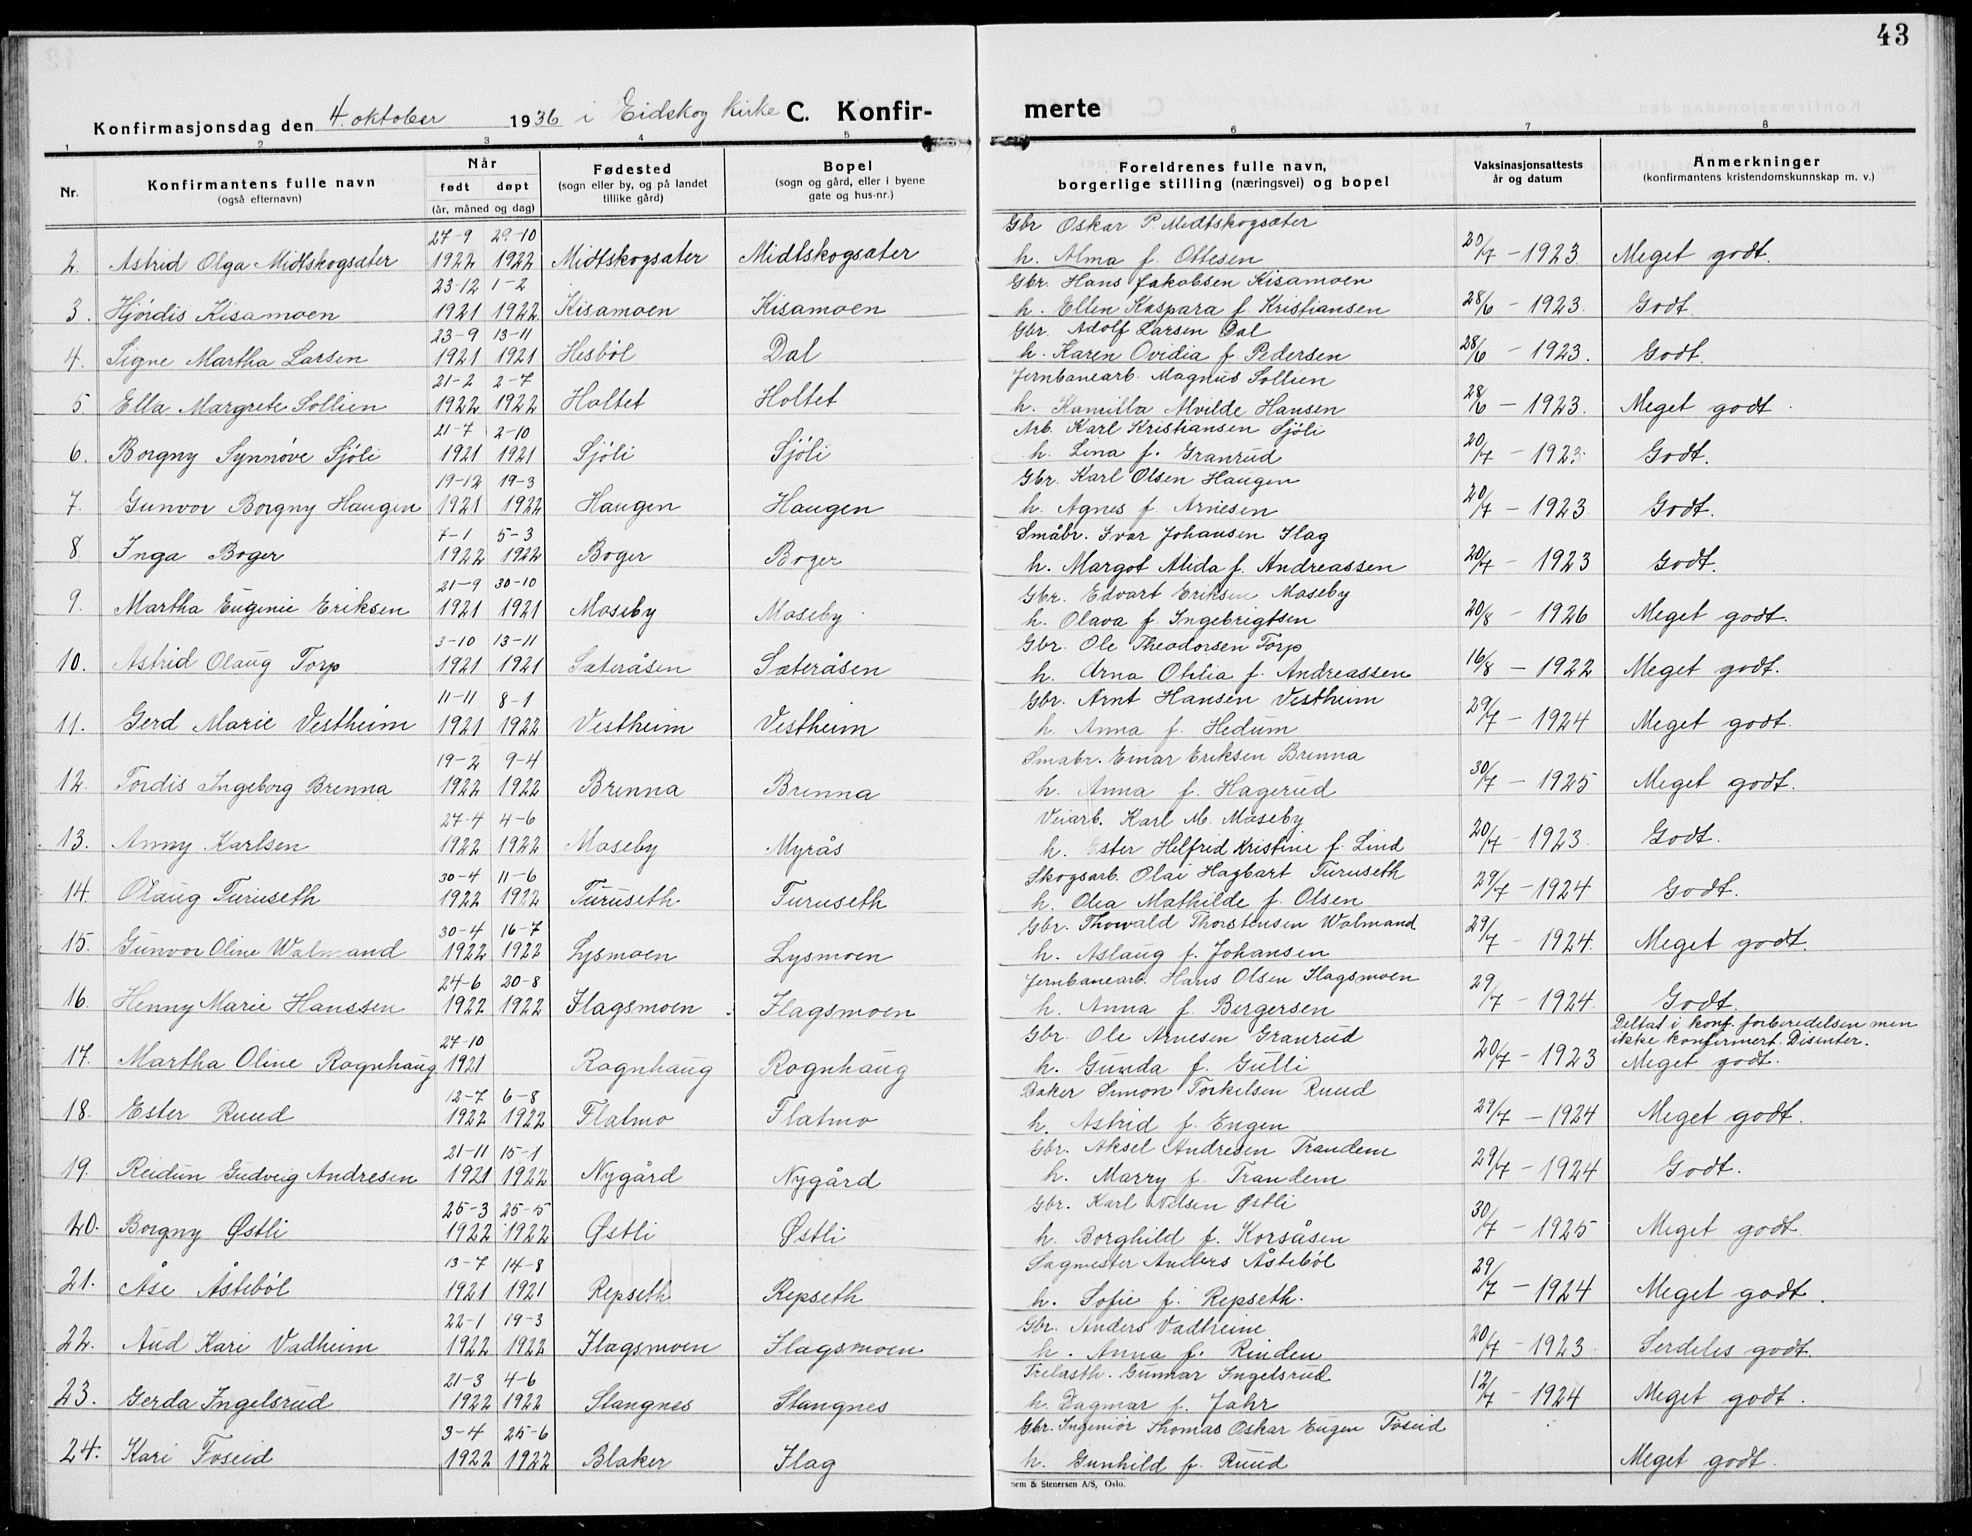 43
Konfirmasjonsdag den 4. oktober 1936 i Eidskog kirke C. Konfirmerte
1 2 3 4 5 6 7 8
Nr. | Konfirmantens fulle navn (også efternavn) | Når født døpt (år, måned og dag) | Fødested (sogn eller by, og på landet tillike gård) | Bopel (sogn og gård, eller i byene gate og hus-nr.) | Foreldrenes fulle navn, borgerlige stilling (næringsvei) og bopel | Vaksinasjonsattests år og datum | Anmerkninger (konfirmantens kristendomskunnskap m. v.)
27-9 29-10 Gbr Oskar P. Midtskogsæter
2. Astrid Olga Midtskogsæter 1922 1922 Midtskogsæter Midtskogsæter h. Alma f. Ottesen 20/7 - 1923 Meget godt.
23-12 1-2 Gbr. Hans Jakobsen Kisamoen
3. Hjördis Kisamoen 1921 1922 Kisamoen Kisamoen h. Ellen Kaspara f. Kristiansen 28/6 - 1923. Godt.
23-9 13-11 Gbr. Adolf Larsen Dal
4. Signe Martha Larsen 1921 1921 Hesböl Dal h. Karen Ovidia f. Pedersen 28/6 - 1923. Godt.
21-2 2-7 Jernbanearb. Magnus Sollien
5. Ella Margrete Sollien 1922 1922 Holtet Holtet h. Kamilla Alvilde Hansen 28/6 - 1923. Meget godt.
21-7 2-10 Arb. Karl Kristiansen Sjöli
6. Borgny Synnöve Sjöli 1921 1921 Sjöli Sjöli h. Lina f. Granrud 20/7 - 1923. Godt.
19-12 19-3 Gbr. Karl Olsen Haugen
7. Gunvor Borgny Haugen 1921 1922 Haugen Haugen h. Agnes f. Arnesen 20/7 - 1923. Godt.
7-1 5-3 Småbr. Ivar Johansen Flag
8. Inga Boger 1922 1922 Boger Boger h. Margot Alida f. Andreassen 20/7 - 1923 Godt.
21-9 30-10 Gbr. Edvart Eriksen Moseby
9. Martha Eugenie Eriksen 1921 1921 Moseby Moseby h. Olava f. Ingebrigtsen 20/8 - 1926 Meget godt.
3-10 13-11 Gbr. Ole Theodorsen Torp
10. Astrid Olaug Torp 1921 1921 Sæteråsen Sæteråsen h. Arna Otilia f. Andreassen 16/8 - 1922 Meget godt.
11-11 8-1 Gbr. Arnt Hansen Vestheim
11. Gerd Marie Vestheim 1921 1922 Vestheim Vestheim h. Anna f. Hedum 29/7 - 1924 Meget godt.
19-2 9-4 Småbr. Einar Eriksen Brenna
12. Tordis Ingeborg Brenna 1922 1922 Brenna Brenna h. Anna f. Hagerud 30/7 - 1925 Meget godt.
27-4 4-6 Veiarb. Karl M. Moseby
13. Anny Karlsen 1922 1922 Moseby Myrås h. Ester Helfrid Kristine f. Lind 20/7 - 1923. Godt.
30-4 11-6 Skogsarb. Olai Hagbart Turuseth
14. Olaug Turuseth 1922 1922 Turuseth Turuseth h. Olea Mathilde f. Olsen 29/7 - 1924 Godt.
30-4 16-7 Gbr. Thorvald Thorstensen Walmand
15. Gunvor Oline Walmand 1922 1922 Lysmoen Lysmoen h. Aslaug f. Johansen 29/7 - 1924. Meget godt.
24-6 20-8 Jernbanearb. Hans Olsen Flagsmoen
16. Henny Marie Hanssen 1922 1922 Flagsmoen Flagsmoen h. Anna f. Bergersen 29/7 - 1924. Godt.
27-10 Gbr. Ole Arnesen Granrud Deltat i konf. forberedelsen men ikke konfirmert. Disenter.
17. Martha Oline Rognhaug 1921 Rognhaug Rognhaug h. Gunda f. Gulli 20/7 - 1923 Meget godt.
12-7 6-8 Baker Simon Torkelsen Ruud
18. Ester Ruud 1922 1922 Flatmo Flatmo h. Astrid f. Engen 29/7 - 1924 Meget godt.
21-11 15-1 Gbr. Aksel Andresen Trandem
19. Reidun Gudveig Andresen 1921 1922 Nygård Nygård h. Marry f. Trandem 29/7 - 1924 Godt.
25-3 25-5 Gbr. Karl Nilsen Østli
20. Borgny Østli 1922 1922 Østli Østli h. Borghild f. Korsåsen 30/7 - 1925 Meget godt.
13-7 14-8 Sagmester Anders Åsteböl
21. Åse Åsteböl 1921 1921 Repseth Repseth h. Sofie f. Repseth. 29/7 - 1924 Meget godt.
22-1 19-3 Gbr. Anders Vadheim
22. Aud Kari Vadheim 1922 1922 Flagsmoen Flagsmoen h. Anna f. Rinden 20/7 - 1923 Serdeles godt.
21-3 4-6 Trelasth. Gunnar Ingelsrud
23. Gerda Ingelsrud 1922 1922 Stangnes Stangnes h. Dagmar f. Jahr 12/7 - 1924 Meget godt.
3-4 25-6 Gbr. Ingeniör Thomas Oskar Eugen Foseid
24. Kari Foseid 1922 1922 Blaker Flag h. Gunhild f. Ruud Meget godt.
Sem & Stenersen A/S, Oslo.